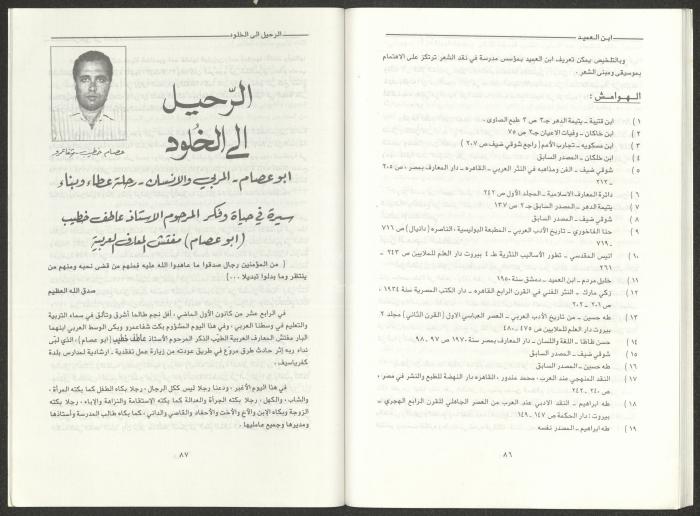 ابن العميد
وبالتلخيص يمكن تعريف ابن العميد بمؤسس مدرسة في نقد الشعر ترتكز على الاهتمام
بموسيقى ومبنى الشعر .
الهوامش :
١ ) ابن قتيبة ـ يتيمة الدهر جـ٣ ص ٣ طبع الصاوى .
٢ ) ابن خاكان ـ وفيات الاعيان جـ٢ ص ٧٥
٣ ) ابن مسكويه ـ تجارب الأمم ( راجع شوقي ضيف ص ٢٠٧ )
٤ ) ابن خلكان ـ المصدر السابق
٥ ) شوقي ضيف ـ الفن ومذاهبه في النثر العربي ـ القاهره ـ دار المعارف بمصر ، ص ٢٠٥
ـ ٢١٢
٦ ) دائرة المعارف الاسلامية ـ المجلد الأول ص ٢٤٢
٧ ) يتيمة الدهر ـ المصدر السابق جـ ٢ ص ١٣٧
٨ ) شوقي ضيف ـ المصدر السابق
٩ ) حنا الفاخوري ـ تاريخ الأدب العربي ـ المطبعة البوليسية ، الناصره ( دانيال ) ص ٧١٦
ـ ٧١٩ .
١٠ ) انيس المقدسي ـ تطور الأساليب النثرية ط ٤ بيروت دار العلم للملايين ص ٢٤٣ ـ
٢٦١
١١ ) خليل مردم ـ ابن العميد ـ دمشق سنة ١٩٥٠
١٢ ) زكي مبارك ـ النثر الفني في القرن الرابع القاهره ـ دار الكتب المصرية سنة ١٩٣٤ ،
ص ٢٠١ ـ ٢٠٢
١٣ ) طه حسين ـ من تاريخ الأدب العربي ـ العصر العباسي الاول ( القرن الثاني ) مجلد ٢
بيروت دار العلم للملايين ص ٤٧٥ ـ ٤٨٠
١٤ ) حسن ظاظا ـ اللغة واللسان ـ دار المعارف بمصر سنة ١٩٧٠ ص ٩٧ ـ ٩٨
١٥ ) شوقي ضيف ـ المصدر السابق
١٦ ) طه حسين ـ المصدر السابق
١٧ ) النقد المنهجي عند العرب ، محمد مندور ، القاهره دار النهضة للطبع والنشر في مصر ،
ص ٢٤٠ ـ ٢٤٢
١٨ ) طه ابراهيم ـ النقد الادبي عند العرب من العصر الجاهلي للقرن الرابع الهجري ـ
بيروت : دار الحكمة ص ١٤٧ ـ ١٤٩
١٩ ) طه ابراهيم ـ المصدر نفسه
٨٦
الرحيل الى الخلود
الرّحيل
الى الخلود
عصام خطيب - شفاعمرو
ابو عصام - المربي والانسان - رحلة عطاء وبناء
سيرة في حياة وفكر المرحوم الاستاذ عاطف خطيب
(ابو عصام) مفتش المعارف العربية
( من المؤمنين رجال صدقوا ما عاهدوا الله عليه فمنهم من قضى نحبه ومنهم من
ينتظر وما بدلوا تبديلا ... )
صدق الله العظيم
في الرابع عشر من كانون الأول الماضي ، أفل نجم طالما أشرق وتألق في سماء التربية
والتعليم في وسطنا العربي ، وفي هذا اليوم المشؤوم بكت شفاعمرو وبكى الوسط العربي ابنهما
البار مفتش المعارف العربية الطيب الذكر المرحوم الأستاذ عاطف خطيب ( ابو عصام ) ، الذي لبّى
نداء ربه إثر حادث طرق مروّع في طريق عودته من زيارة عمل تفقدية ـ ارشادية لمدارس بلدة
كفرياسيف .
في هذا اليوم الأغبر ، ودعنا رجلا ليس ككل الرجال ، رجلا بكاه الطفل كما بكته المرأة ،
والشاب ، والكهل ، رجلا بكته الجرأة والعدالة كما بكته الإستقامة والنزاهة والإباء ، رجلا بكته
الزوجة وبكاه الإبن والأخ والأخت والأحفاد والقاصي والداني ، كما بكاه طالب المدرسة وأستاذها
ومديرها وجميع عامليها .
٨٧